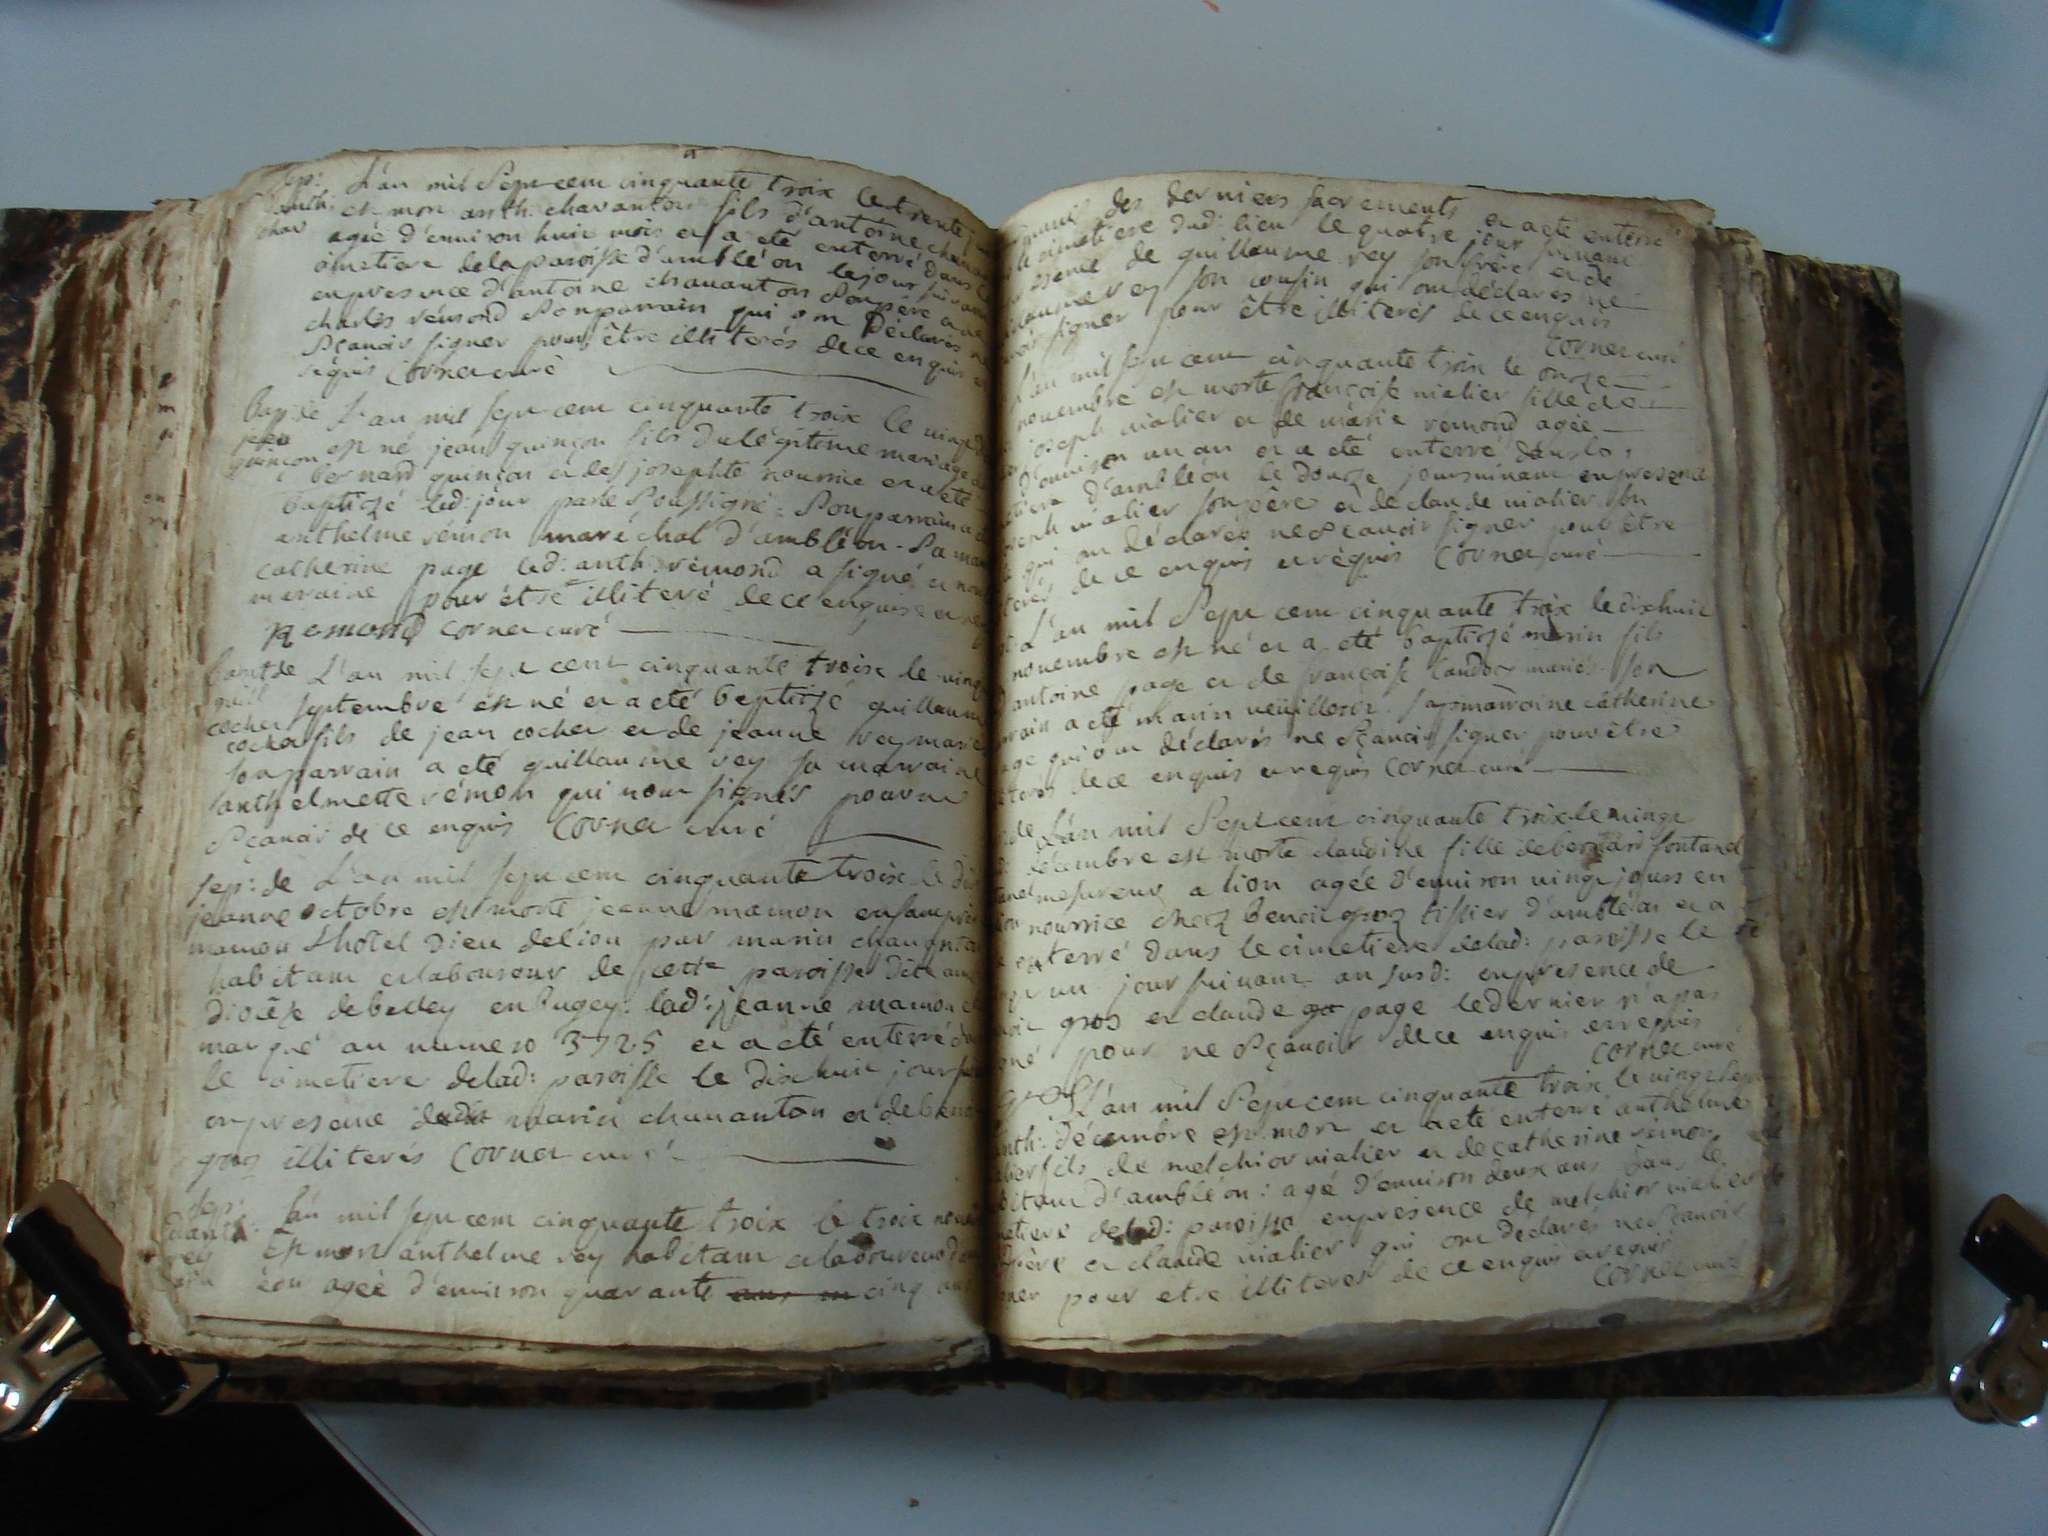 Sep: L'an mil Sept cent cinquante troix le trente
anth: est mort anth: chavanton fils d'antoine
chav agée d'environ huit mois et a eté enterré dans
cimetiere dela paroisse d'ambléon le jour suivant
en presence d'antoine chavanton Son père et de
charles rémond Son parrain qui ont Déclarés ne
Sçavoir signer pour être illiterés de ce enquis et
réquis Cornet curé
Bapt: de L'an mil sept cent cinquante troix le
jean est né jean quinçon fils du légitime mariage
quinçon bernard quinçon et de josephte nourrie et a eté
baptizé led: jour par le Soussigné: Son parrain a
anthelme rémon maréchal d'ambléon. Sa
catherine page led: anth: rémond a signé et non
maraine pour étre illiteré de ce enquise et
Remond Cornet curé
bapt de L'an mil sept cent cinquante troix le
guill septembre est né et a eté baptizé guillaume
cocher cocher fils de jean cocher et de jeanne rey mariés
son parrain a eté guillaume rey sa marraine
anthelmette rémon qui n'ont signés pour ne
Sçavoir de ce enquis Cornet curé
sep: de L'an mil sept cent cinquante troix le
jeanne octobre est morte jeanne mamon
mamon L'hôtel Dieu de lion par marin chavanton
habitant et laboureur de cette paroisse
diocése de belley en bugey: lad: jeanne mamon
marqué au numero 3725 et a eté enterré
le cimetiere delad: paroisse le dix huit jour
en presence dudit marin chavanton et de
gros illiterés Cornet curé
Sep: L'an mil sept cent cinquante troix le troix
danth: Est mort anthelme rey habitant et laboureur
rey agée d'environ quarante cinq ans
des derniers sacrements et a eté enterré
le cimetiere dud: lieu le quatre jour suivant
de guillaume rey son frère et de
rey son cousin qui ont déclarés ne
signer pour être illiterés de ce enquis
Cornet curé
L'an mil sept cent cinquante troix le onze
novembre est morte françoise vialier fille de
joseph vialier et de marie rémond agée
d'environ un an et a eté enterré dans le
d'ambléon le douze jour suivant en presence
vialier son père et de claude vialier son
qui ont déclarés ne Sçavoir signer pour être
de ce enquis et réquis Cornet curé
L'an mil Sept cent cinquante troix le dixhuit
novembre est né et a eté baptizé marin fils
antoine page et de françoise mariés son
a eté marin Sa marraine catherine
page qui ont déclarés ne Sçavoir signer pour être
de ce enquis et requis Cornet curé
de L'an mil Sept cent cinquante troix le vingt
décembre est morte claudine fille de bernard fontanel
a lion agée d'environ vingt jours en
nourrice chez benoit gros tissier d'ambléon et a eté
enterré dans le cimetiere delad: paroisse le
un jour suivant an susd: en presence de
gros et claude page le dernier n'a pas
pour ne Sçavoir de ce enquis et requis
Cornet curé
L'an mil Sept cent cinquante troix le vingt
anth: décembre est mort et a eté enterré anthelme
fils de melchior vialier et de catherine rémon
d'ambléon: agé d'environ deux ans dans le
delad: paroisse en presence de melchior vialier
père et claude vialier qui ont déclarés ne Sçavoir
pour etre illiteres de ce enquis et requis
Cornet curé